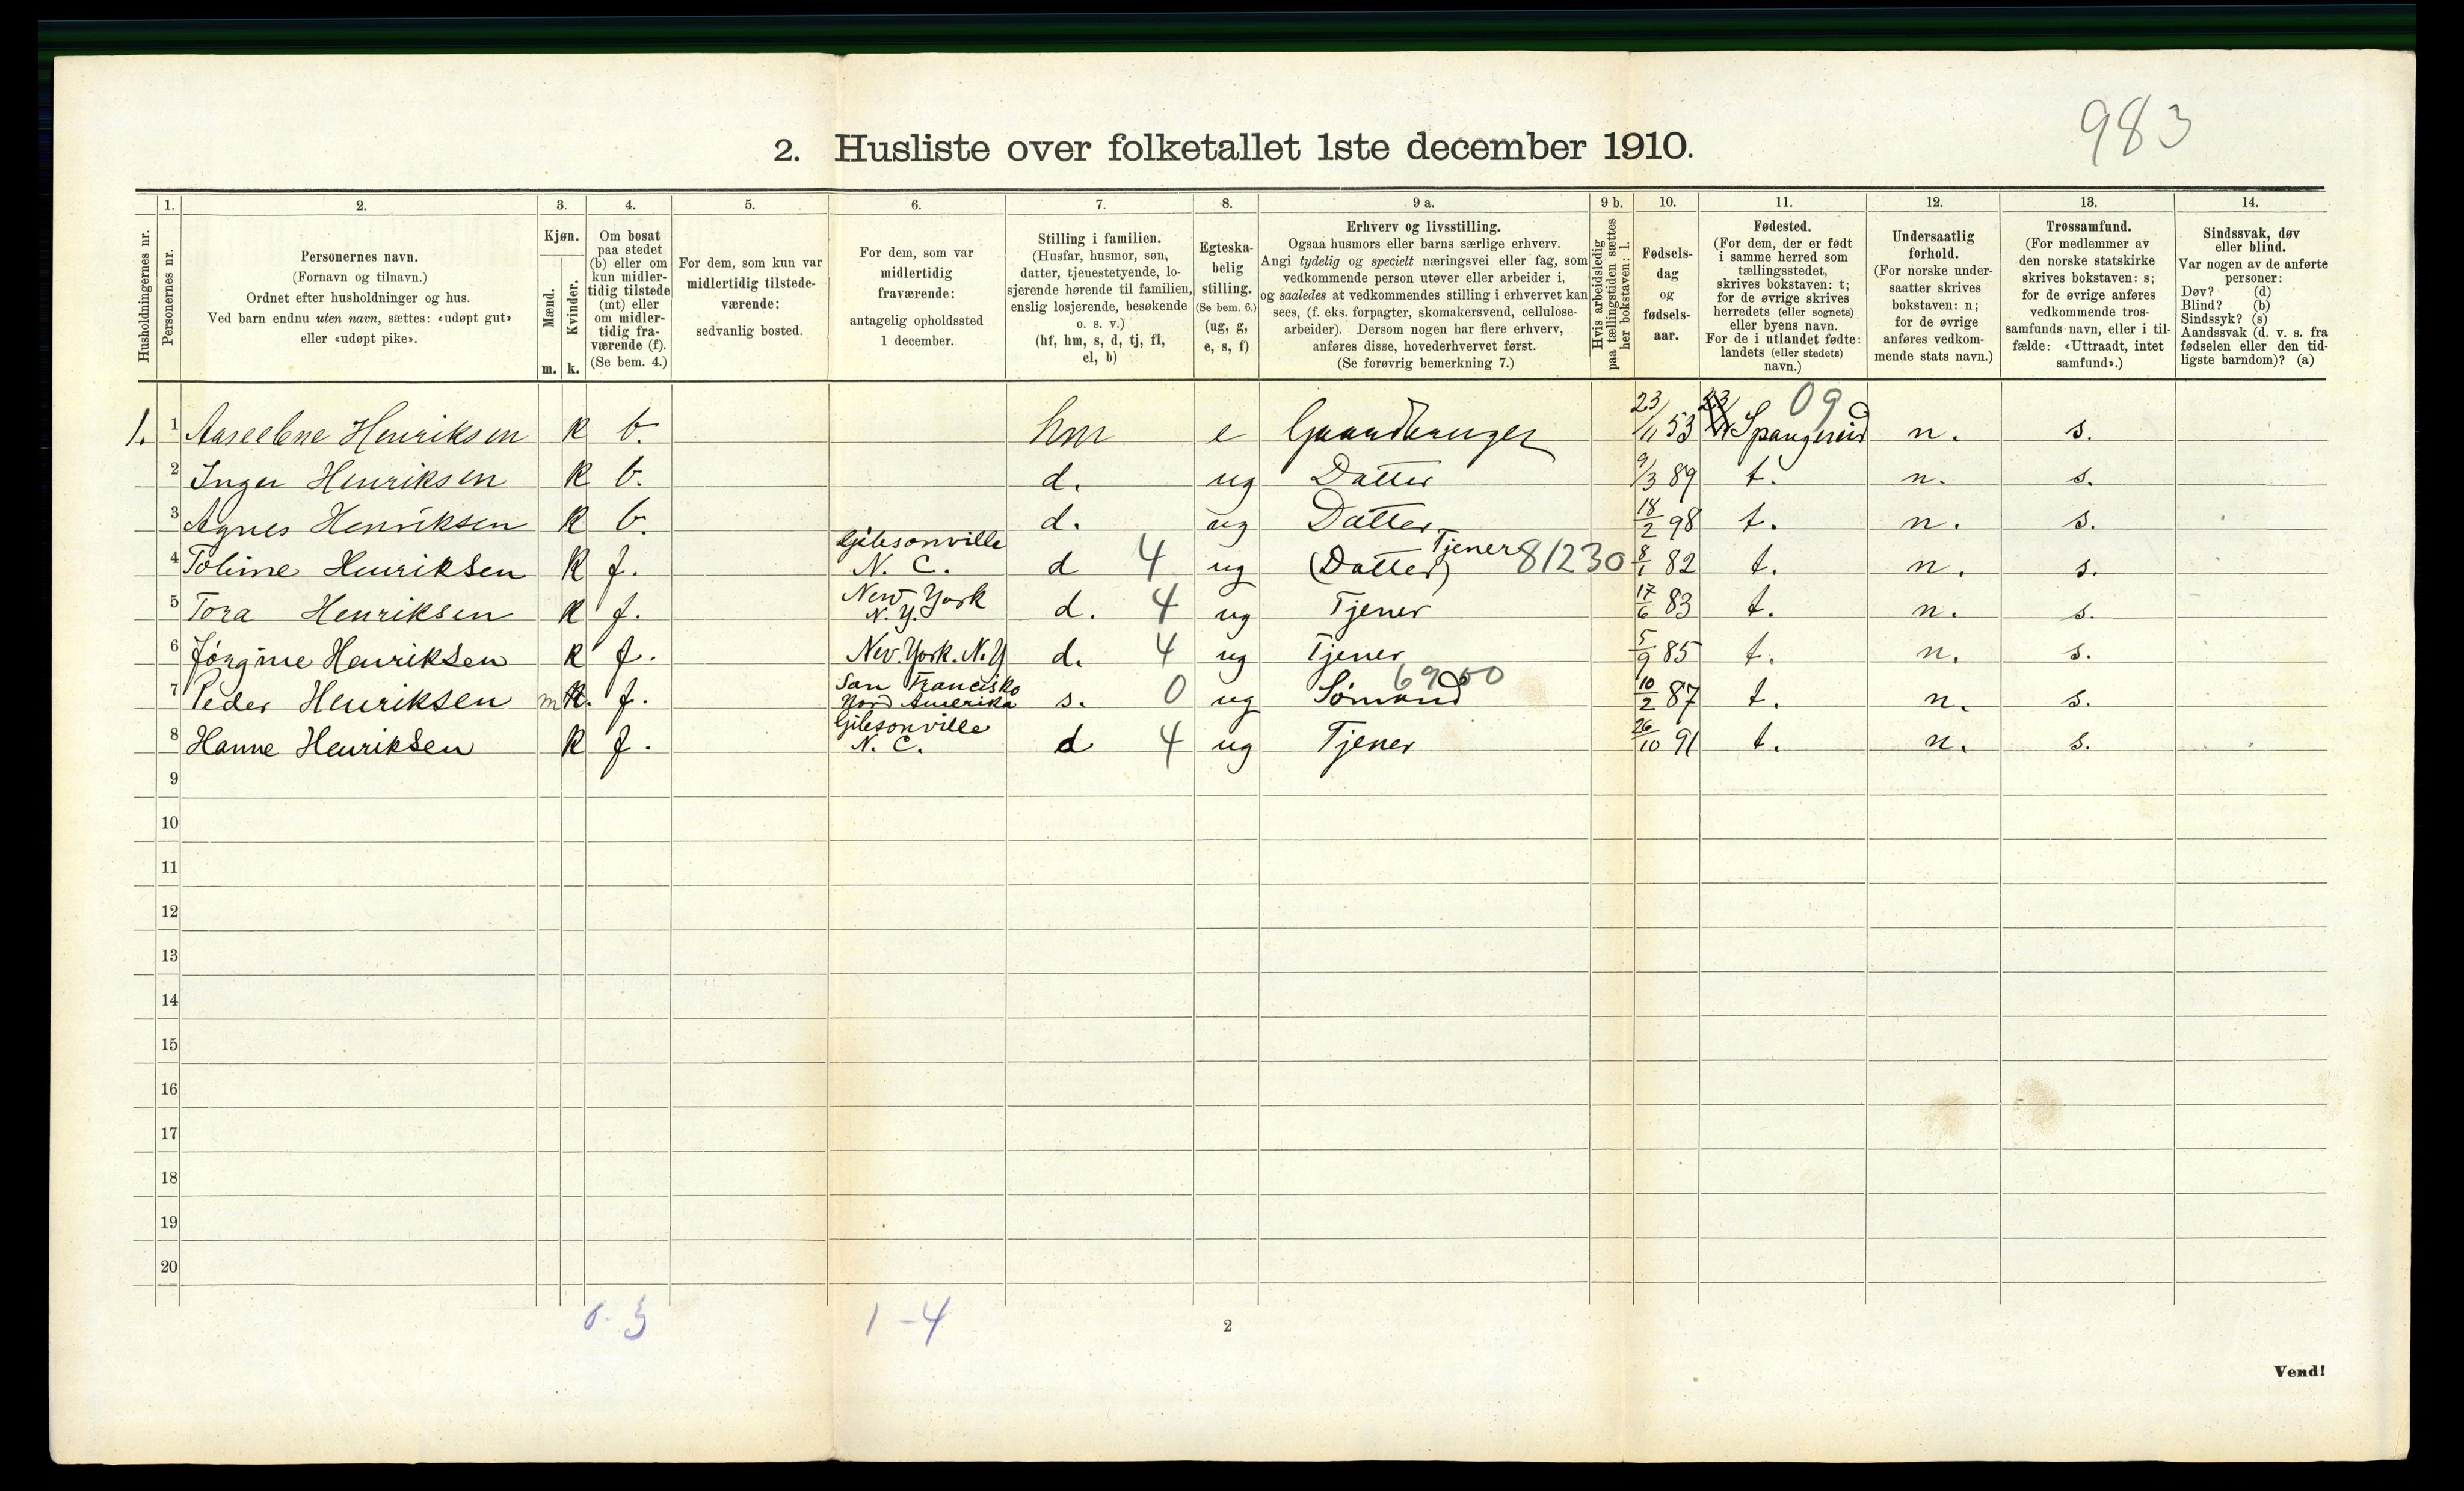 983
2. Husliste over folketallet 1ste december 1910.
Husholdningernes nr.
1.
Personernes nr.
2.
Personernes navn.
(Fornavn og tilnavn.)
Ordnet efter husholdninger og hus.
Ved barn endnu uten navn, sættes: «udøpt gut»
eller «udøpt pike».
3.
Kjøn.
Mænd.
Kvinder.
m. k.
4.
Om bosat
paa stedet
(b) eller om
kun midler-
tidig tilstede
(mt) eller
om midler-
tidig fra-
værende (f).
(Se bem. 4.)
5.
For dem, som kun var
midlertidig tilstede-
værende:
sedvanlig bosted.
6.
For dem, som var
midlertidig
fraværende:
antagelig opholdssted
1 december.
7.
Stilling i familien.
(Husfar, husmor, søn,
datter, tjenestetyende, lo-
sjerende hørende til familien,
enslig losjerende, besøkende
o. s. v.)
(hf, hm, s, d, tj, fl,
el, b)
8.
Egteska-
belig
stilling.
(Se bem. 6.)
(ug, g,
e, s, f)
9 a.
Erhverv og livsstilling.
Ogsaa husmors eller barns særlige erhverv.
Angi tydelig og specielt næringsvei eller fag, som
vedkommende person utøver eller arbeider i,
og saaledes at vedkommendes stilling i erhvervet kan
sees, (f. eks. forpagter, skomakersvend, cellulose-
arbeider). Dersom nogen har flere erhverv,
anføres disse, hovederhvervet først.
(Se forøvrig bemerkning 7.)
9 b.
Hvis arbeidsledig
paa tællingstiden sættes
her bokstaven: l.
10.
Fødsels-
dag
og
fødsels-
aar.
11.
Fødested.
(For dem, der er født
i samme herred som
tællingsstedet,
skrives bokstaven: t;
for de øvrige skrives
herredets (eller sognets)
eller byens navn.
For de i utlandet fødte:
landets (eller stedets)
navn.)
12.
Undersaatlig
forhold.
(For norske under-
saatter skrives
bokstaven: n;
for de øvrige
anføres vedkom-
mende stats navn.)
13.
Trossamfund.
(For medlemmer av
den norske statskirke
skrives bokstaven: s;
for de øvrige anføres
vedkommende tros-
samfunds navn, eller i til-
fælde: «Uttraadt, intet
samfund».)
14.
Sindssvak, døv
eller blind.
Var nogen av de anførte
personer:
Døv? (d)
Blind? (b)
Sindssyk? (s)
Aandssvak (d. v. s. fra
fødselen eller den tid-
ligste barndom)? (a)
09
1. 1 Aaselene Henriksen k b. hm e Gaardbruger 23/11 53 Spangereid n. s.
2 Inger Henriksen k b. d. ug Datter 9/3 89 t. n. s.
3 Agnes Henriksen k b. d. ug Datter 18/2 98 t. n. s.
4 Toline Henriksen k f. Gibsonville N. C. d 4 ug (Datter) Tjener 81230 8/1 82 t. n. s.
5 Tora Henriksen k f. New York N. Y. d. 4 ug Tjener 17/6 83 t. n. s.
6 Jørgine Henriksen k f. Nev. York. N. Y d. 4 ug Tjener 5/9 85 t. n. s.
7 Peder Henriksen m k. f. San Francisko Nord Amerika s. 0 ug Sømand 10/2 87 t. n. s.
8 Hanne Henriksen k f. Gibsonville N. C. d 4 ug Tjener 26/10 91 t. n. s.
9
10
11
12
13
14
15
16
17
18
19
20
0-3 1-4
2
Vend!